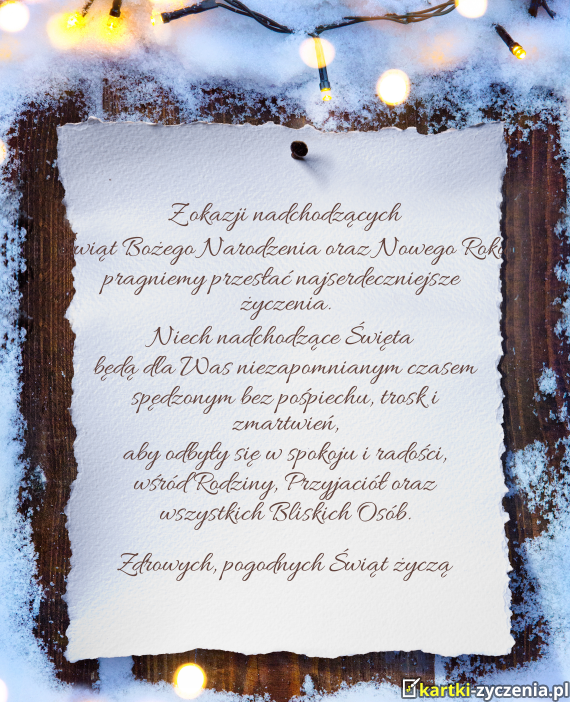 Z okazji nadchodzących
wiąt Bożego Narodzenia oraz Nowego Roku
pragniemy przesłać najserdeczniejsze
życzenia.
Niech nadchodzące Święta
będą dla Was niezapomnianym czasem
spędzonym bez pośpiechu, trosk i
zmartwień,
aby odbyły się w spokoju i radości,
wśród Rodziny, Przyjaciół oraz
wszystkich Bliskich Osób.
Zdrowych, pogodnych Świąt życzą
kartki-zyczenia.pl